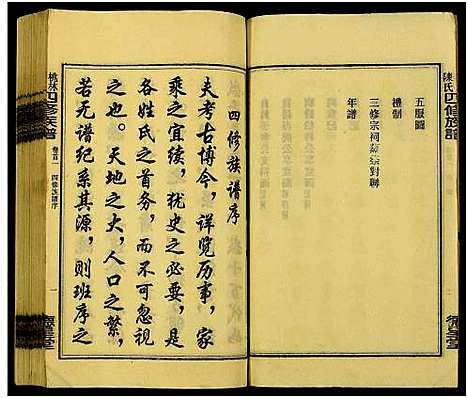 陳氏四修族譜
五服圖
禮制
三修宗祠
對聯
年譜
四修族谱序
夫考古博今，详览历事，家
乘之宜续，犹史之必要，是
各姓氏之首务，而不可忽视
之也。天地之大，人口之繁，
若无谱纪系其源，则班序之
桃林四修族譜
卷首一
四修族譜序
一